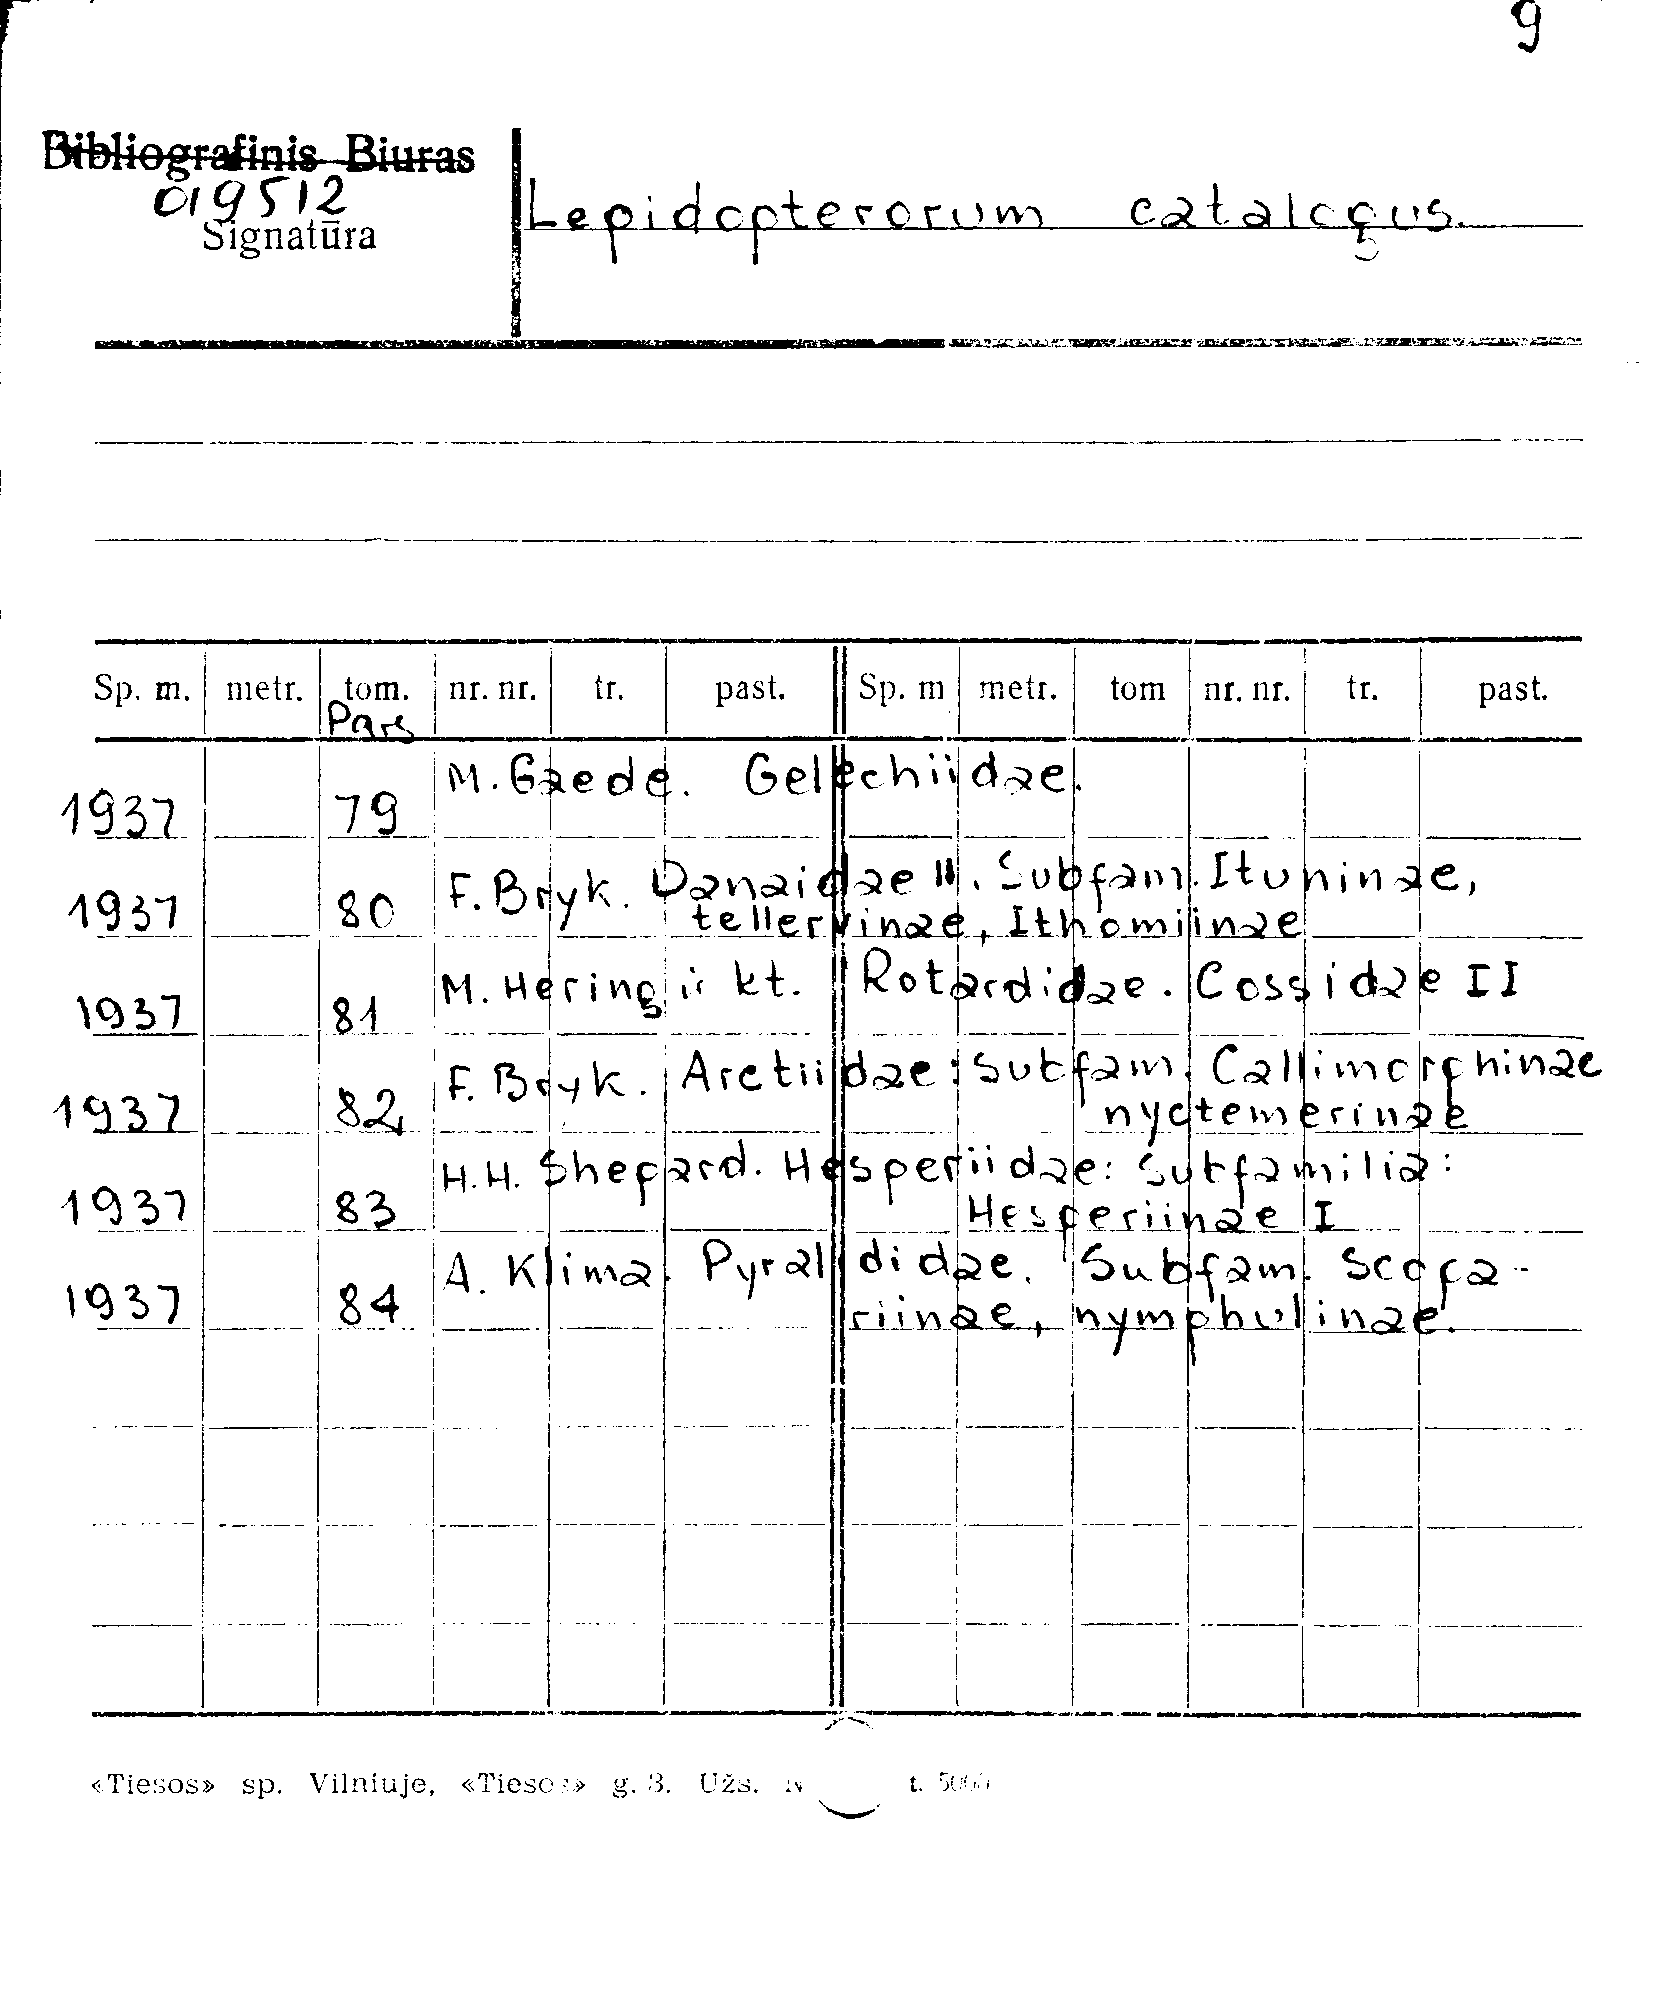 9
Bibliografinis Biuras
019512
Signatūra
Lepidopterorum catalogus.
Sp. m. metr. tom. nr. nr. tr. past. Sp. m metr. tom nr. nr. tr. past.
Pars
1937 79 M. Gaede. Gelechiidae.
1937 80 F. Bryk. Danaidae II. Subfam. Ituninae,
tellervinae, Ithomiinae
1937 81 M. Hering ir kt. Rotardidae. Cossidae II
1937 82 F. Bryk. Arctiidae: Subfam. Callimorphinae
nyctemerinae
1937 83 H.H. Shepard. Hesperiidae: Subfamilia:
Hesperiinae I
1937 84 A. Klima. Pyralididae. Subfam. Scopa-
riinae, nymphulinae.
«Tiesos» sp. Vilniuje, «Tiesos» g. 3. Užs. t.